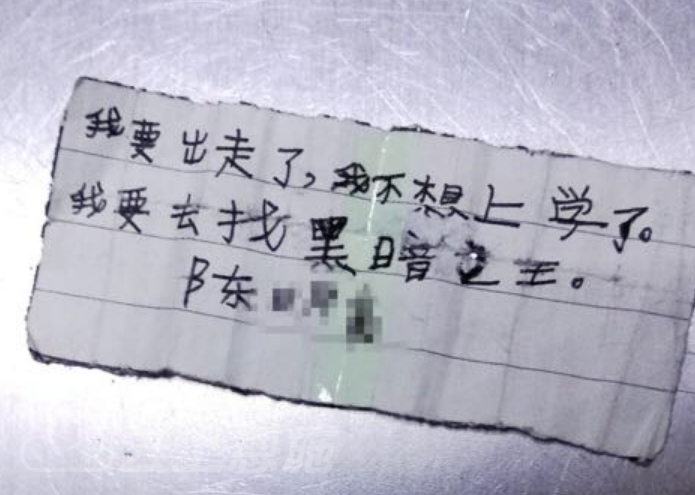 我要出走了,我不想上学了。
我要去找黑暗之王。
陈